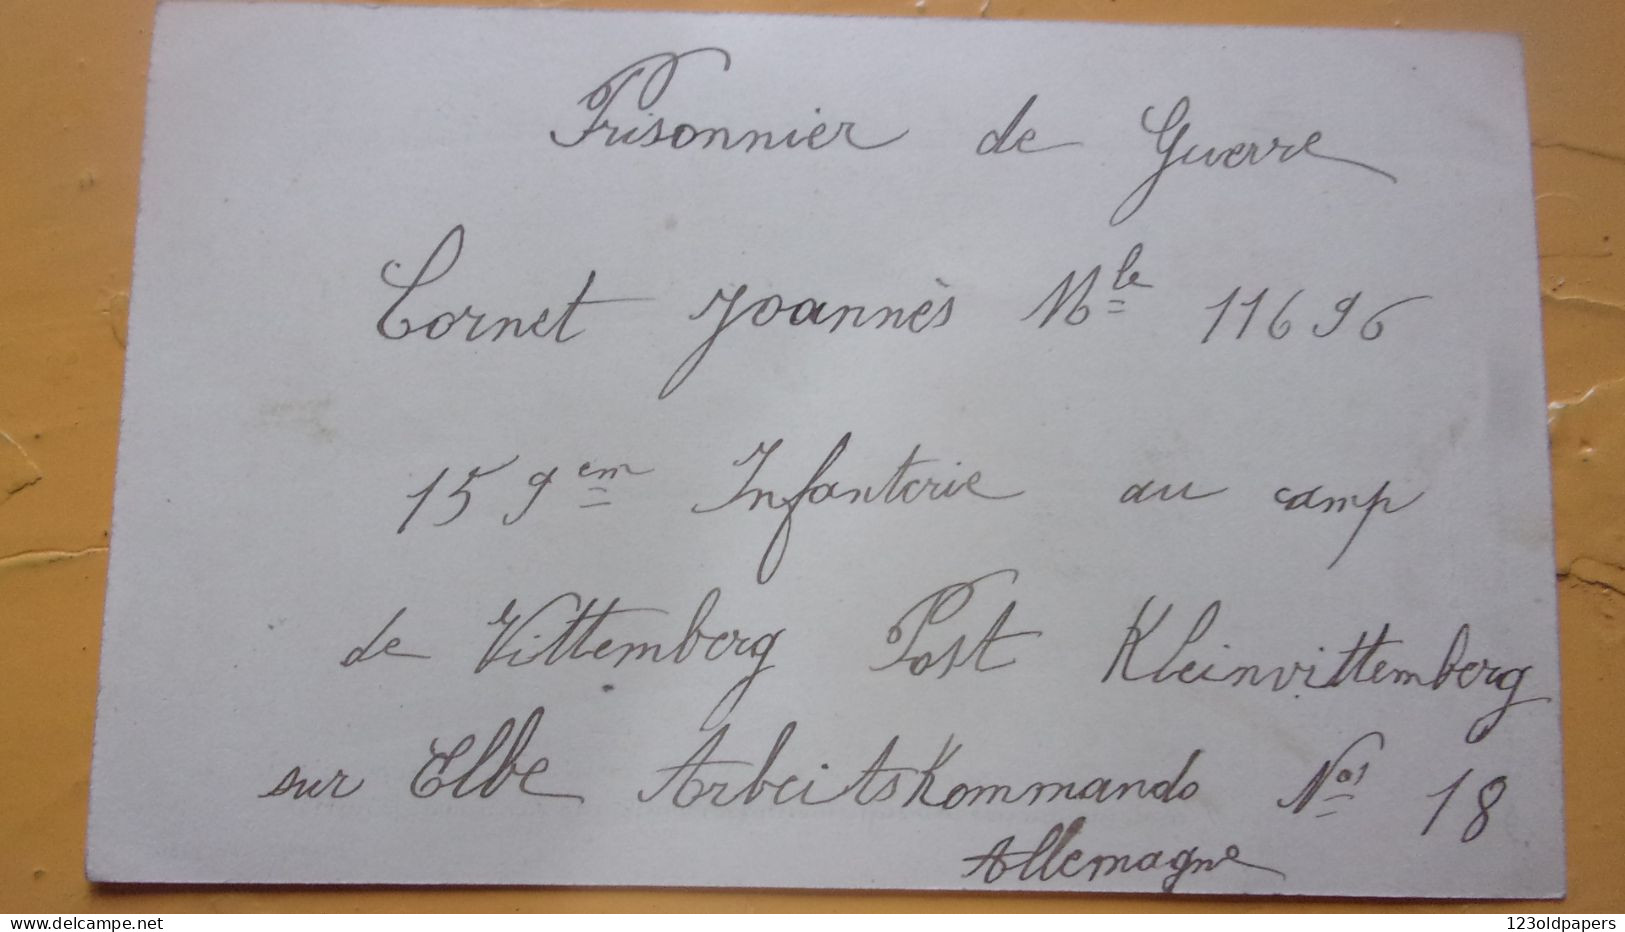 Prisonnier de Guerre
Cornet Joannès Mle 11696
159em Infanterie au camp
de Vittemberg Post Kleinvittemberg
sur Elbe Arbeitskommando Nos 18
Allemagne
www.delcampe.net
123oldpapers